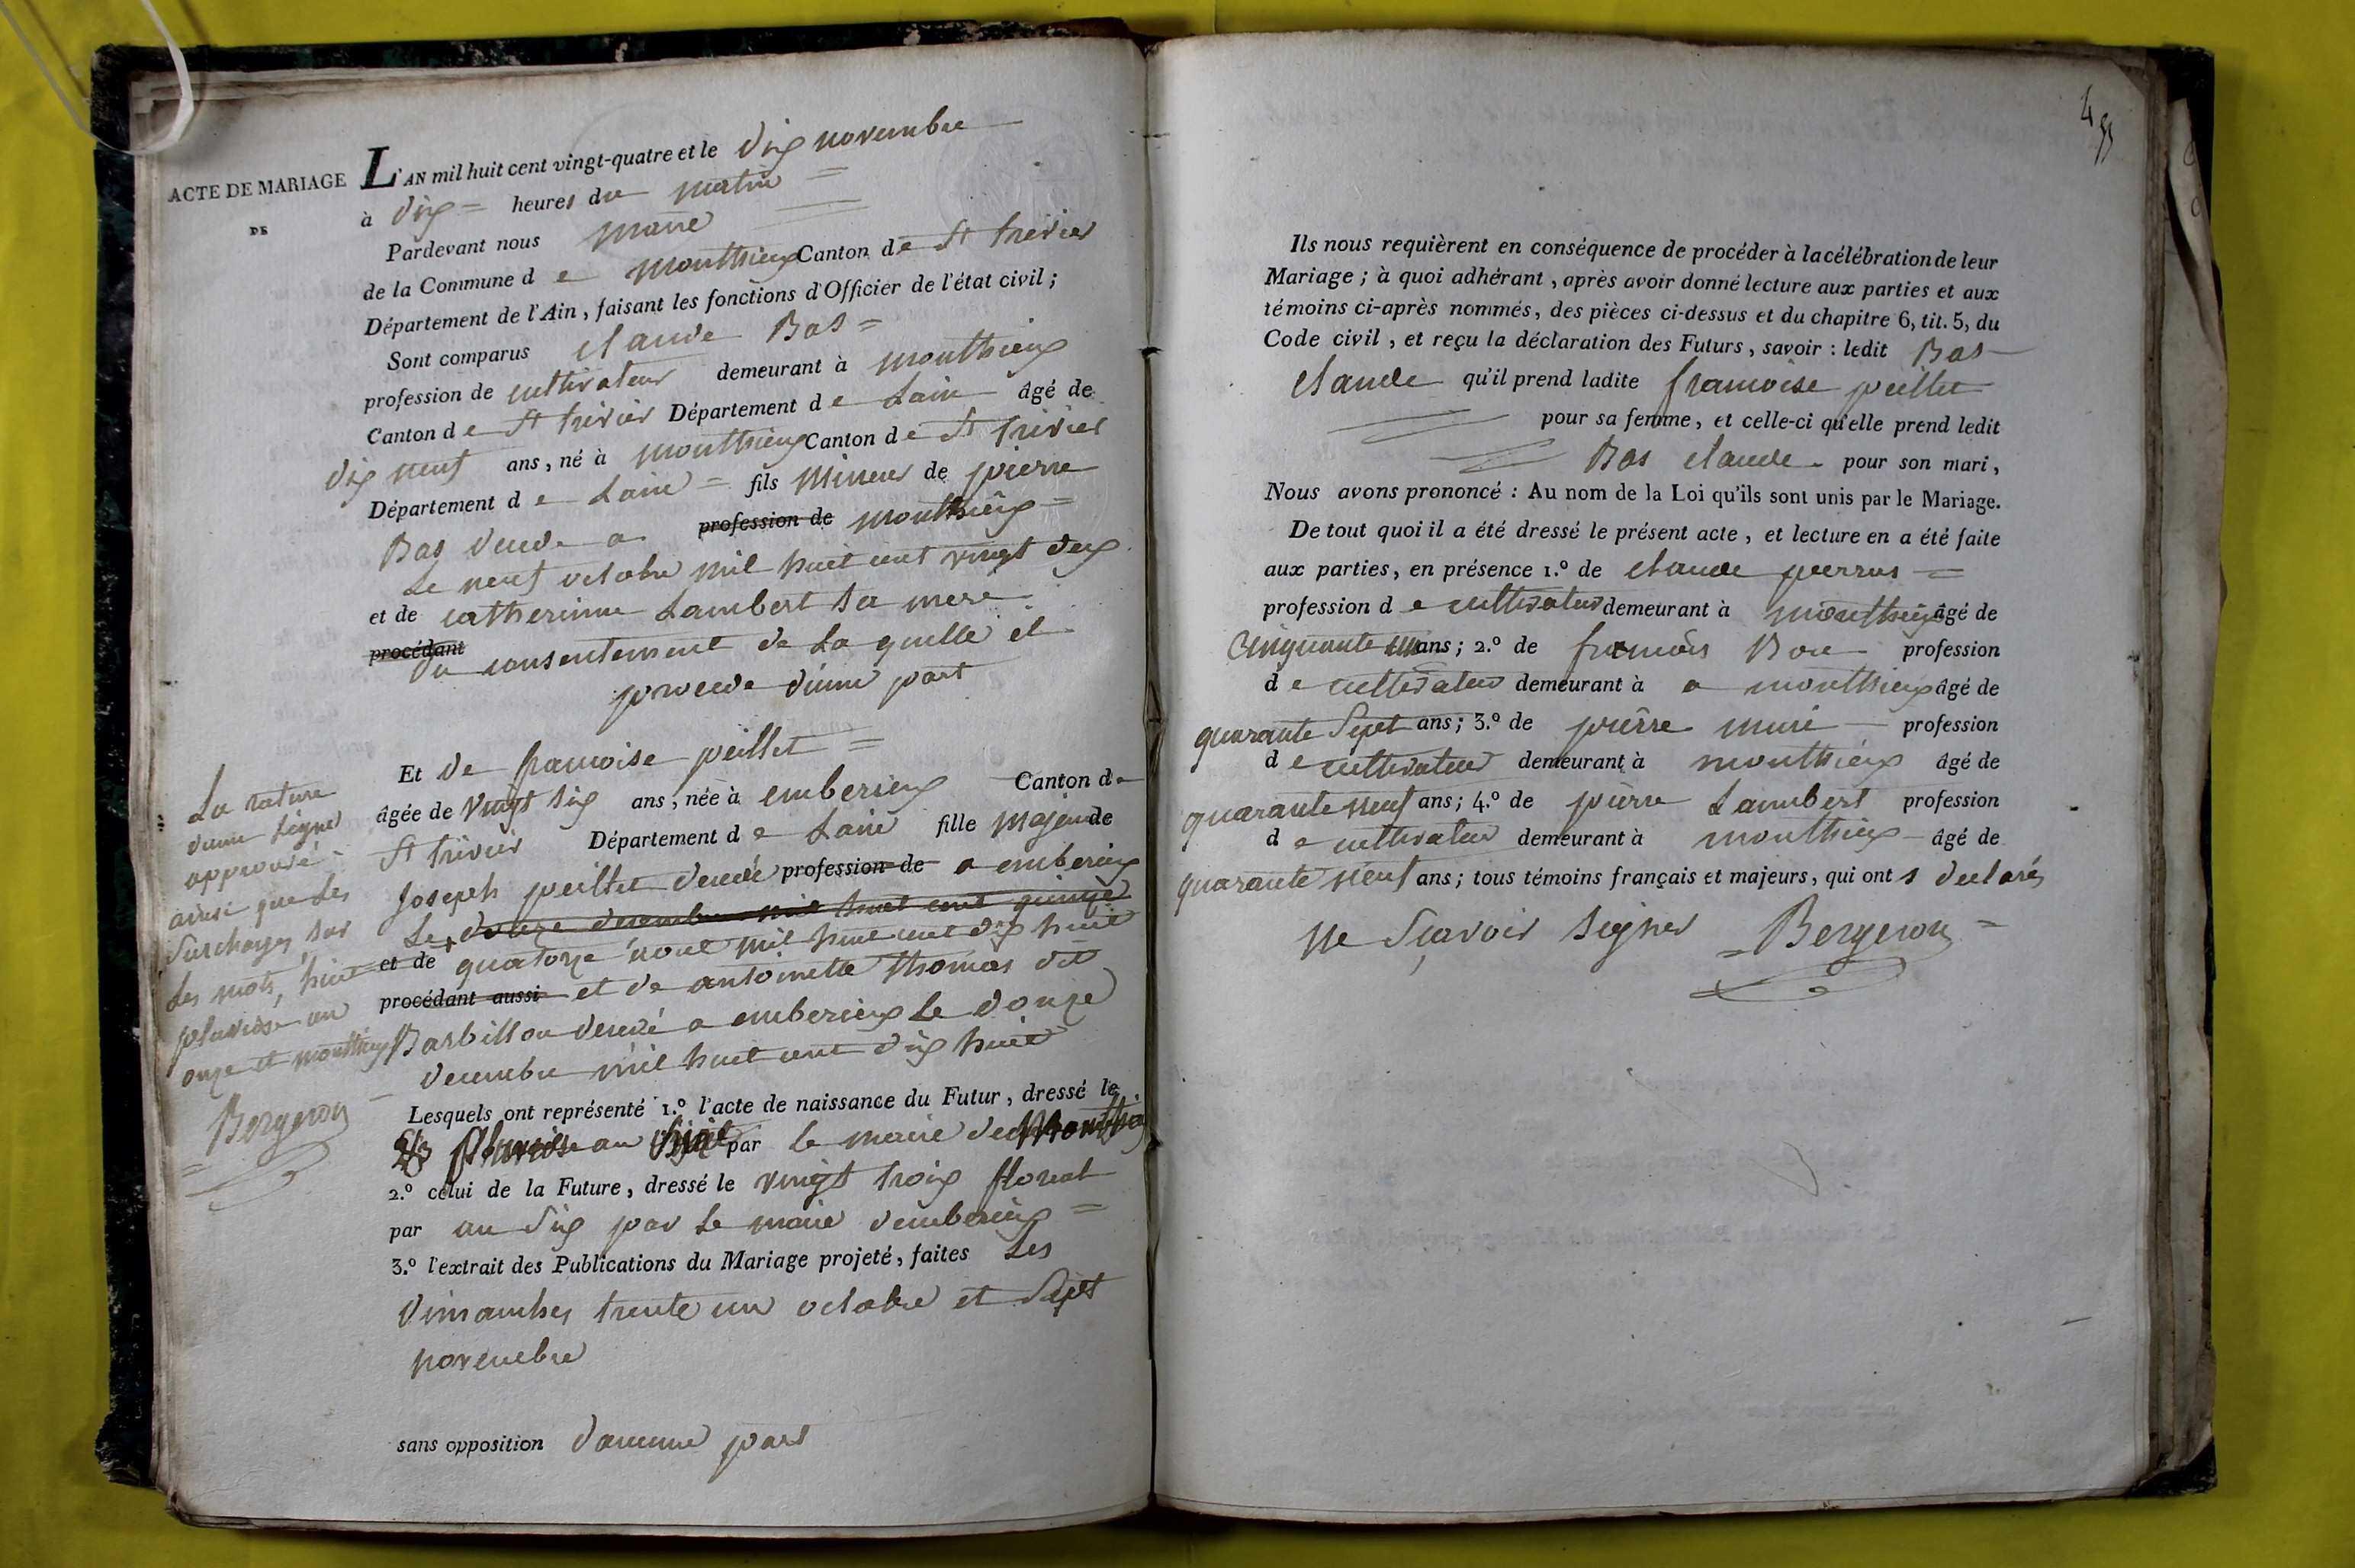 ACTE DE MARIAGE
DE
L'AN mil huit cent vingt-quatre et le dix novembre
à dix = heures du matin =
Pardevant nous maire
de la Commune de monthieux Canton de St trivier
Département de l'Ain, faisant les fonctions d'Officier de l'état civil;
Sont comparus claude Bas =
profession de cultivateur demeurant à monthieux
Canton de St trivier Département de Lain âgé de
dix neuf ans, né à monthieux Canton de St trivier
Département de Lain = fils mineur de pierre
Bas decede a profession de monthieux =
Le neuf octobre mil huit cent vingt deux
et de catherinne Lambert sa mere
procédant
du consentement de La quelle il
procede d'une part
Et de francoise peillet =
âgée de vingt six ans, née à emberieux Canton de
St trivier Département de Lain fille majeur de
Joseph peillet decedé profession de a emberieux
Le douze decembre mil huit cent quinze
et de quatorze aout mil huit cent dix huit
procédant aussi et de antoinette thomas dit
Barbillon decedé a emberieux Le douze
decembre mil huit cent dix huit
Lesquels ont représenté 1.º l'acte de naissance du Futur, dressé le
pluviose an par le maire de monthieux
2.º celui de la Future, dressé le vingt trois floreal
par an six par Le maire demberieux =
3.º l'extrait des Publications du Mariage projeté, faites Les
dimanches trente un octobre et Sept
novembre
sans opposition daucune part
La rature
dune Ligne
approuvé
ainsi que Les
Surcharges sur
Les mots, huit
pluviose an
onze et monthieux
Bergeron
Ils nous requièrent en conséquence de procéder à la célébration de leur
Mariage; à quoi adhérant, après avoir donné lecture aux parties et aux
témoins ci-après nommés, des pièces ci-dessus et du chapitre 6, tit. 5, du
Code civil, et reçu la déclaration des Futurs, savoir: ledit Bas
claude qu'il prend ladite francoise peillet
pour sa femme, et celle-ci qu'elle prend ledit
Bas claude pour son mari,
Nous avons prononcé: Au nom de la Loi qu'ils sont unis par le Mariage.
De tout quoi il a été dressé le présent acte, et lecture en a été faite
aux parties, en présence 1.º de claude perras =
profession de cultivateur demeurant à monthieux âgé de
Cinquante un ans; 2.º de francois profession
de cultivateur demeurant à a monthieux âgé de
quarante Sept ans; 3.º de pierre profession
de cultivateur demeurant à monthieux âgé de
quarante neuf ans; 4.º de pierre Lambert profession
de cultivateur demeurant à monthieux âgé de
quarante neuf ans; tous témoins français et majeurs, qui ont s declarés
ne Scavoir signer = Bergeron =